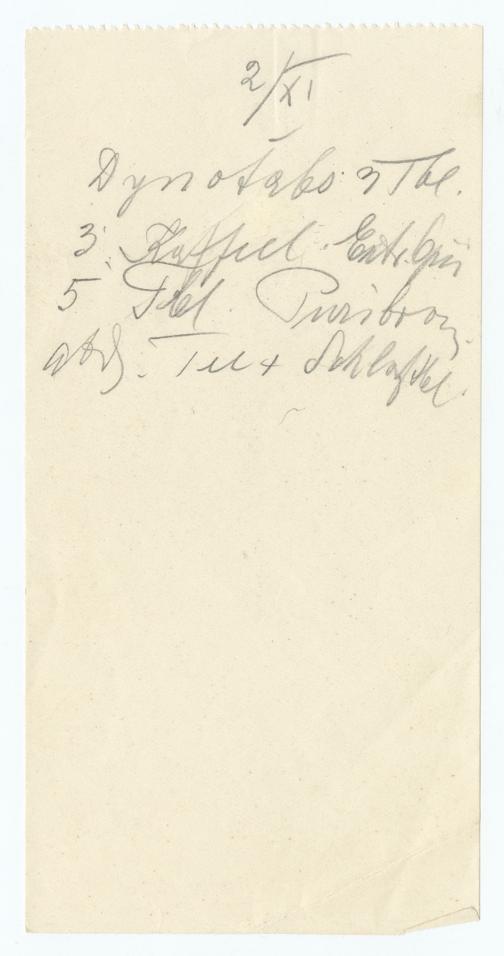 2/XI
Dynotabs 3 Tbl.
3 Kaffeel.
5 Tbl.
abds. Tee + Schlaftbl.